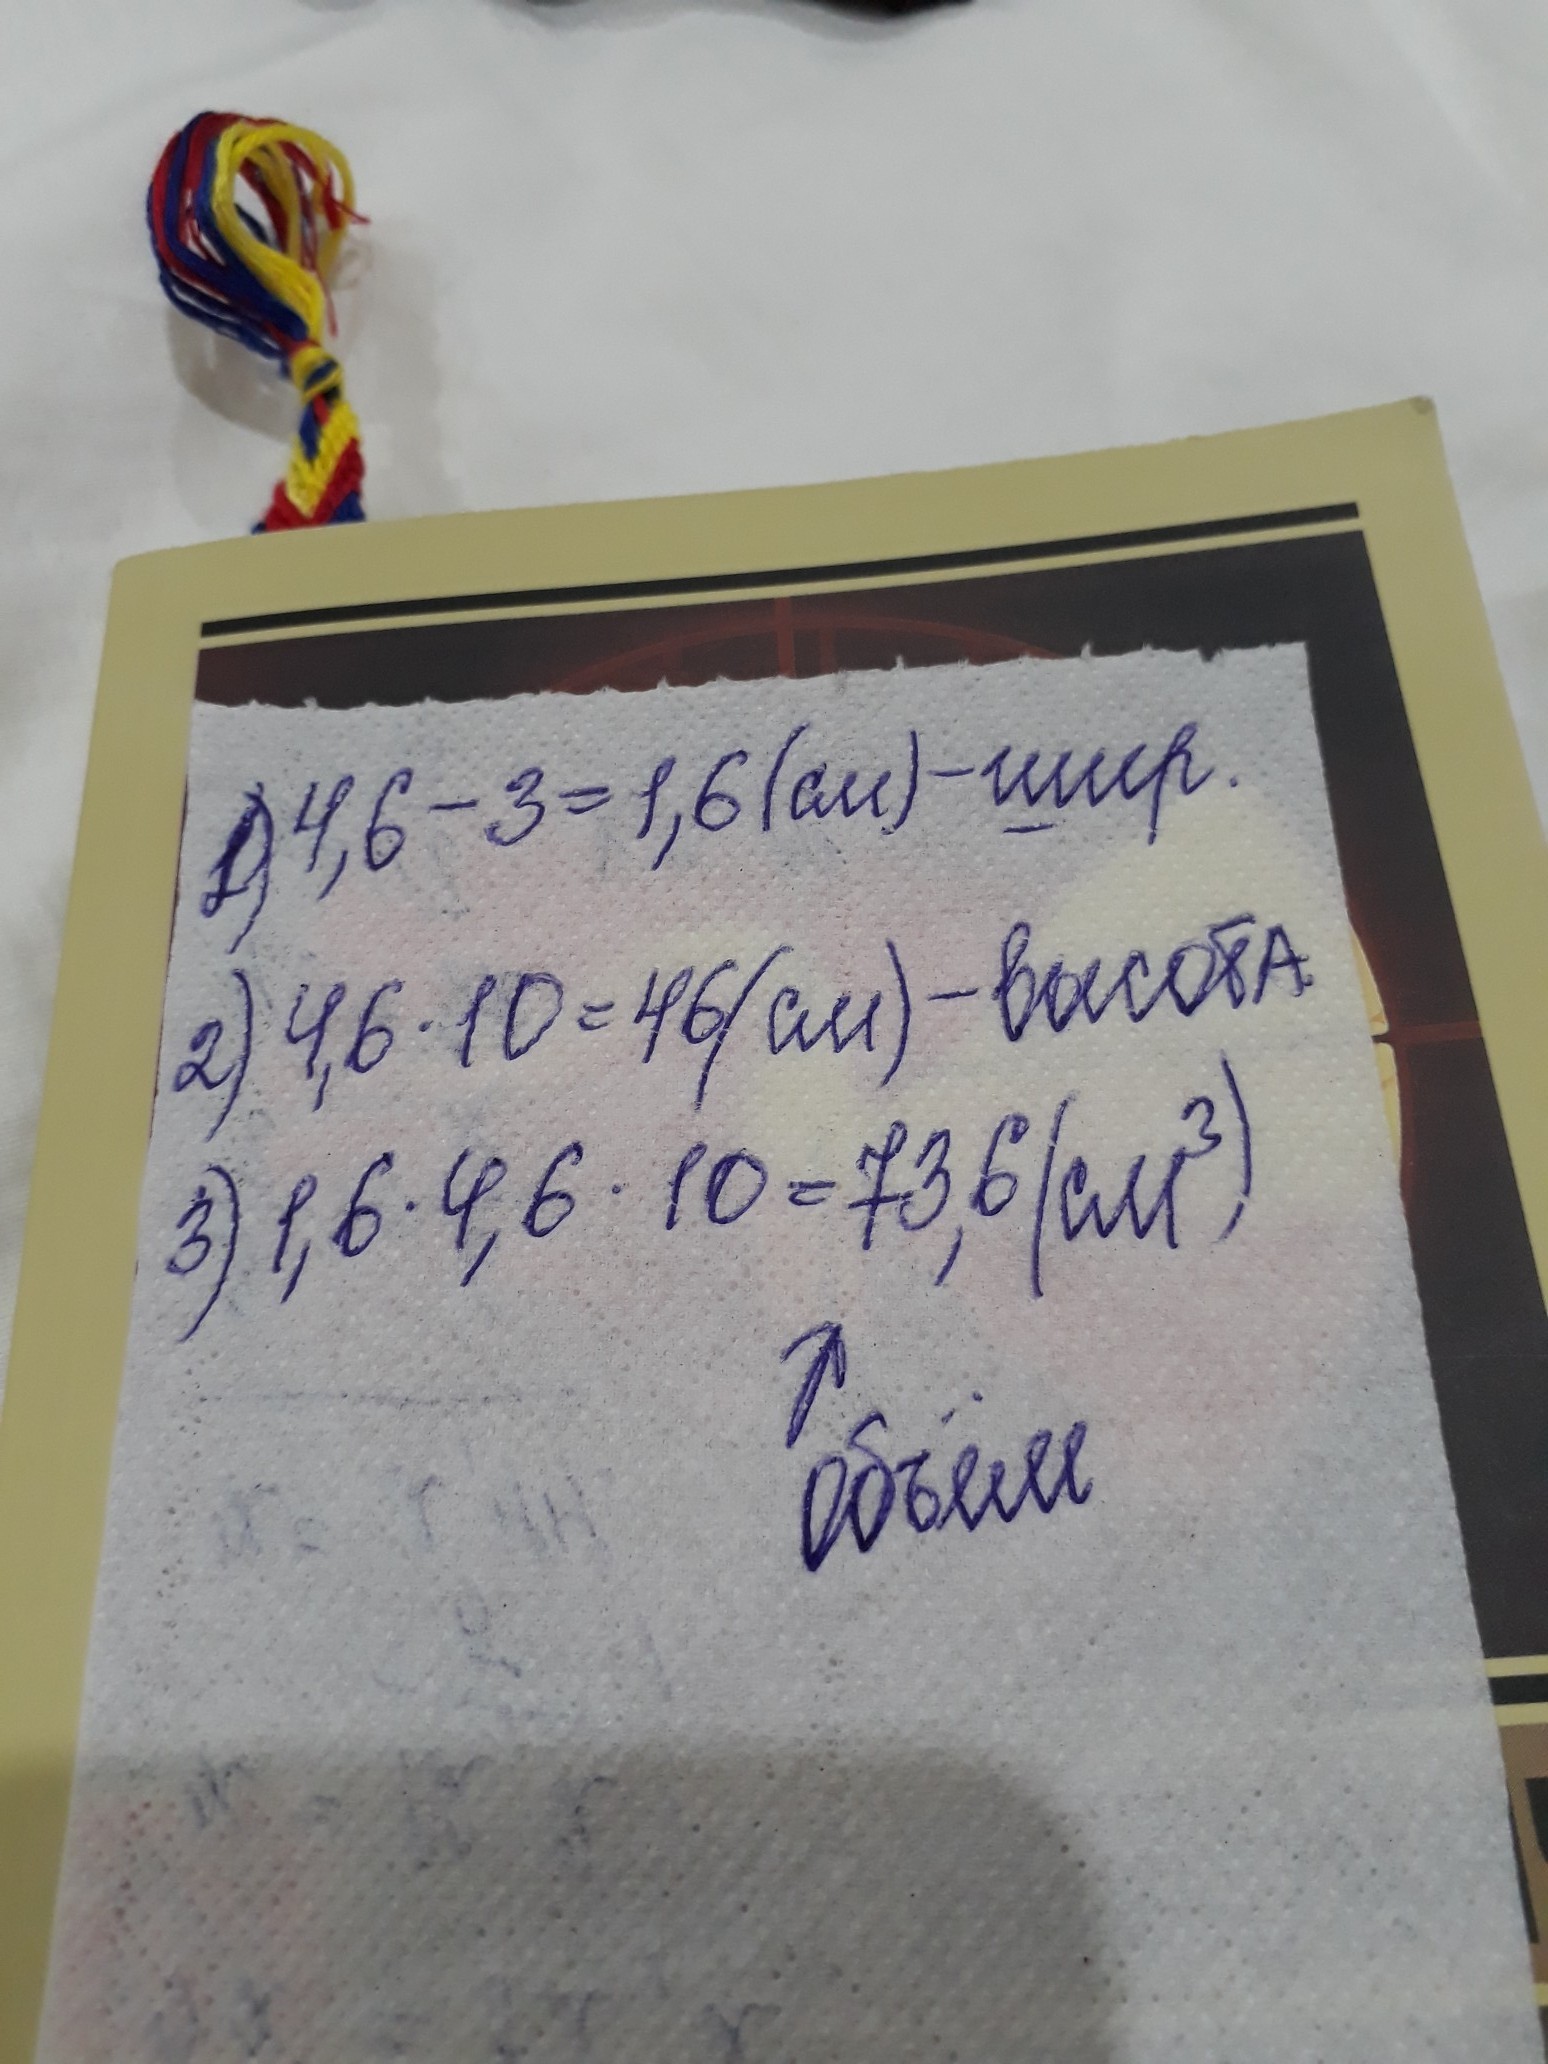 1) 4,6 - 3 = 1,6 (см) - шир.
2) 4,6 · 10 = 46 (см) - высота
3) 1,6 · 4,6 · 10 = 73,6 (см³)
↑
Объём